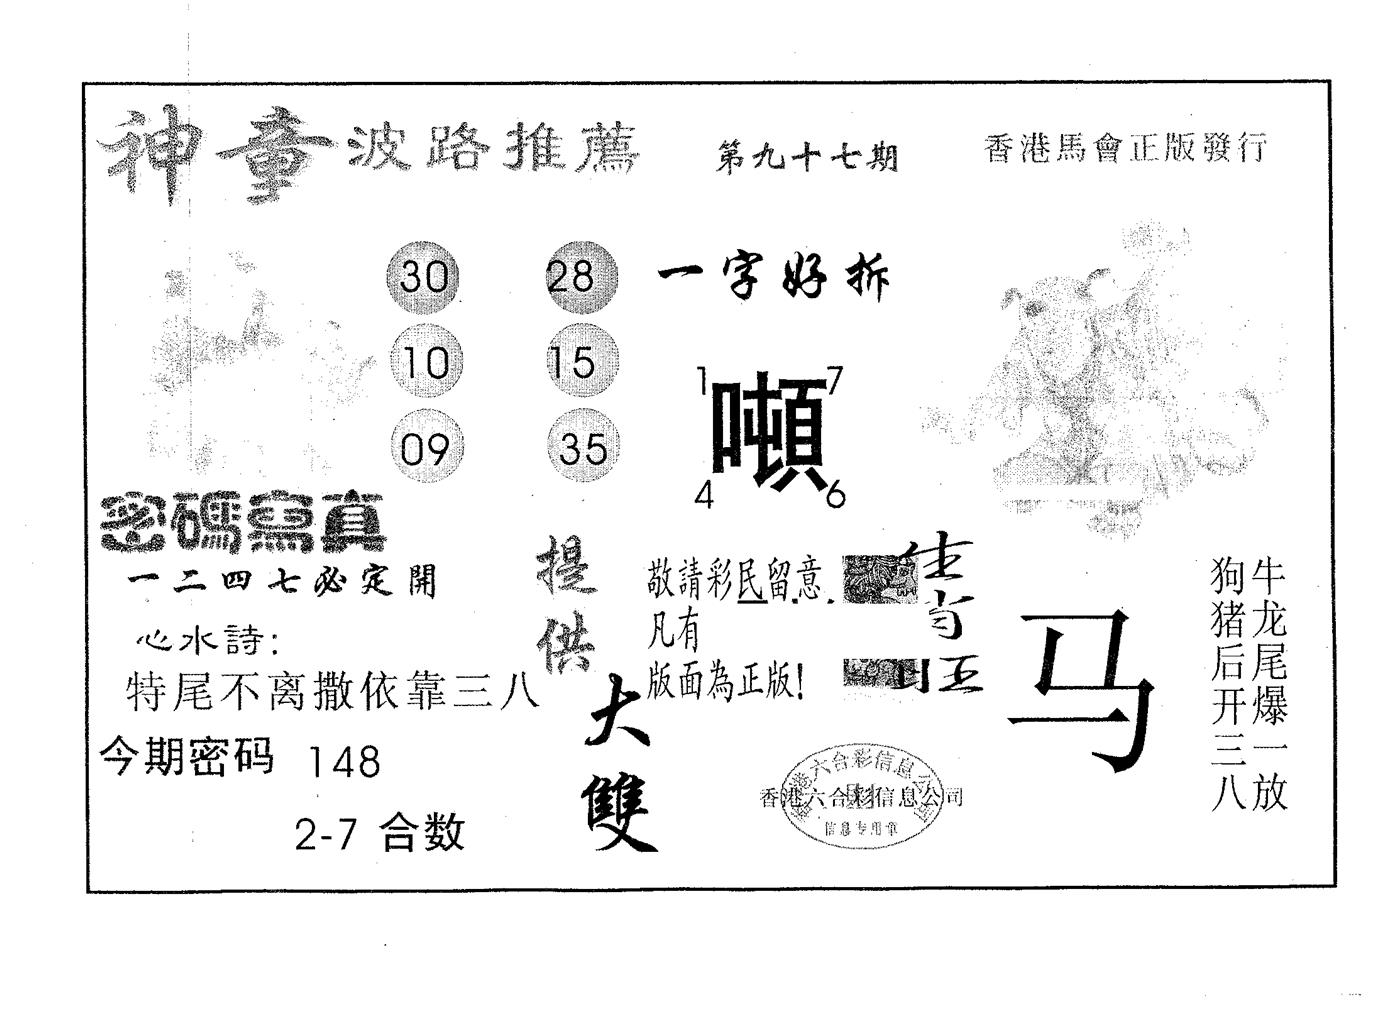 神童波路推薦
第九十七期
香港馬會正版發行
30 28
10 15
09 35
一字好拆
1 7
噸
4 6
密碼寫真
一二四七必定開
心水詩:
特尾不离撒依靠三八
今期密码 148
2-7 合数
提供
大雙
敬請彩民留意.
凡有
版面為正版!
生肖旺
马
牛龙尾爆一放
狗猪后开三八
香港六合彩信息公司
香港六合彩信息公司
信息专用章